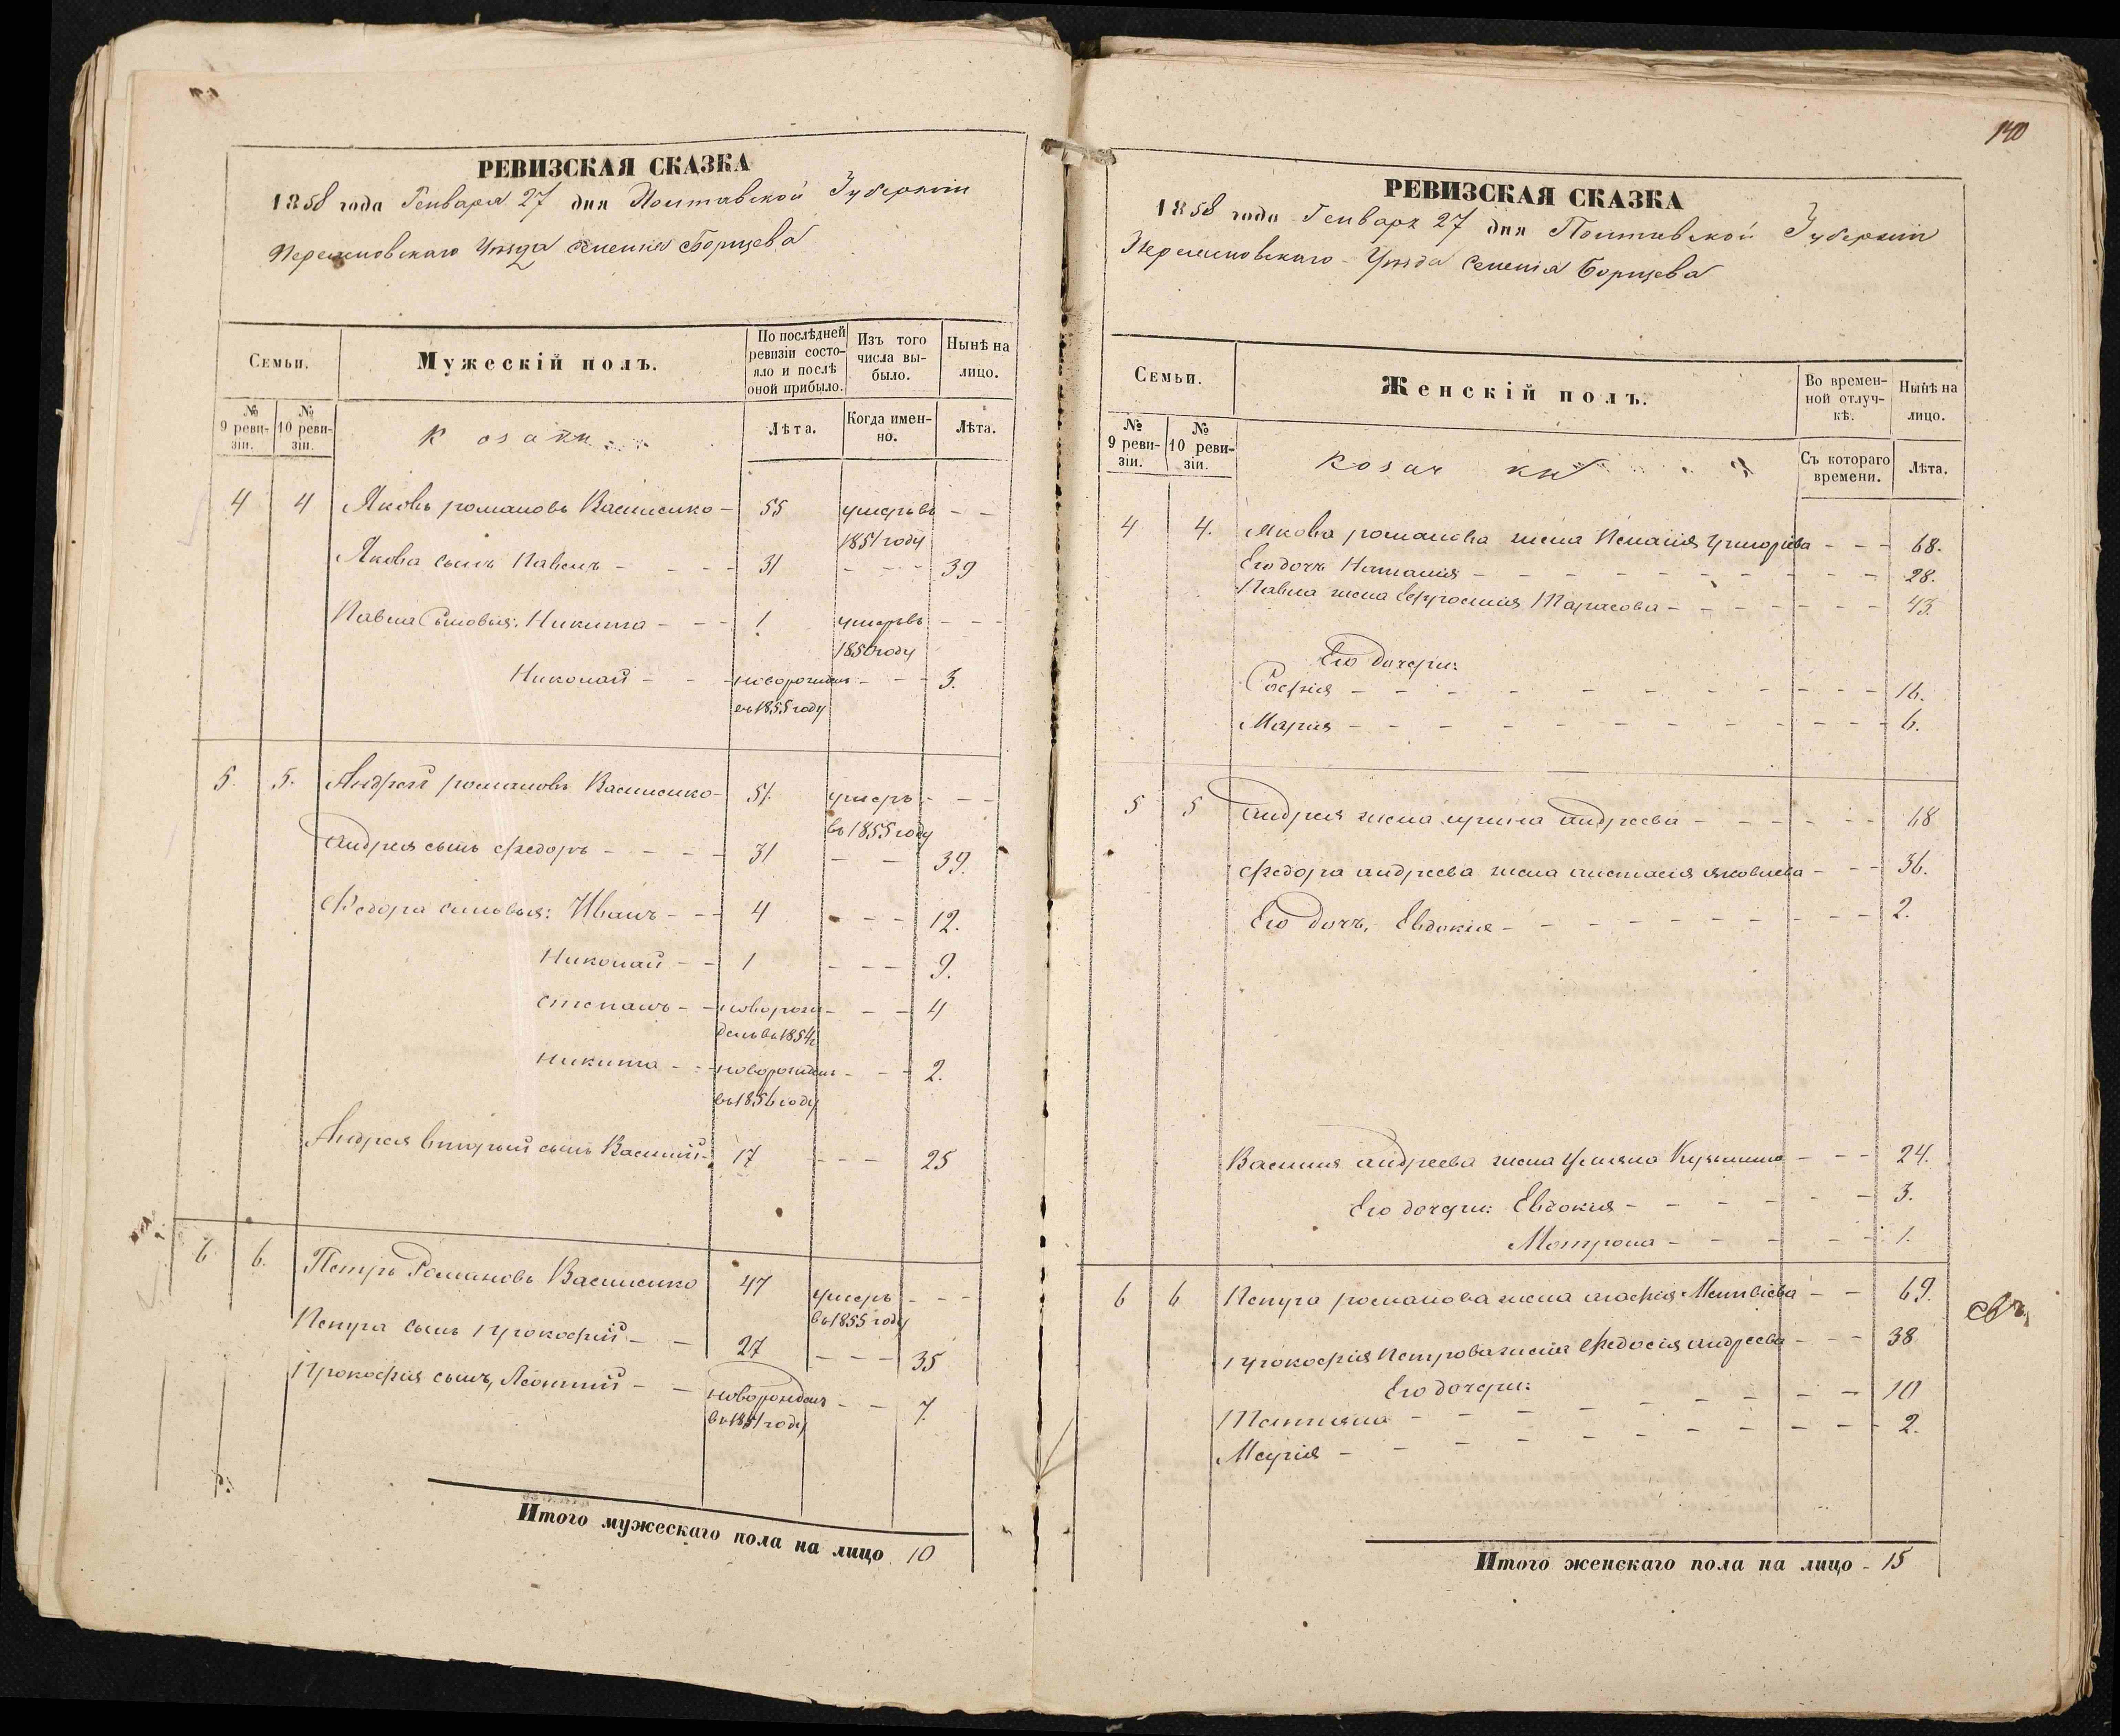 РЕВИЗСКАЯ СКАЗКА
1858 года Генваря 27 дня Полтавской Губерніи
Переясловскаго Уѣзда селенія Борщева
Семьи.
Мужескій полъ.
По послѣдней ревизіи состояло и послѣ оной прибыло.
Изъ того числа выбыло.
Нынѣ на лицо.
№ 9 ревизіи.
№ 10 ревизіи.
Козаки
Лѣта.
Когда именно.
Лѣта.
4 4 Яковъ романовъ Василенко - 55 умеръ въ - -
1851 году
Якова сынъ Павелъ - - - - 31 - - - 39
Павла Сыновья: Никита - - - 1 умеръ въ - - -
1850 году
Николай - - - новорожден - - - 3.
въ 1855 году
5. 5. Андрей романовъ Василенко - 51. умеръ - - -
въ 1855 году
Андрея сынъ Федоръ - - - - 31 - - 39.
Федора синовья: Иванъ - - - 4 - - - 12.
Николай - - 1 - - - 9.
степанъ - - новорож - - - 4
денъ въ 1854 г
никита - - новорожден - - - 2.
въ 1856 году
Андрея вторый сынъ Василий - 17 - - - 25
6 6. Петръ Романовъ Василенко 47 умеръ - - -
въ 1855 году
Петра сынъ прокофий - - 27 - - - 35
Прокофия сынъ, Леонтий - - новорожден - - 7.
въ 1851 году
Итого мужескаго пола на лицо 10
140
РЕВИЗСКАЯ СКАЗКА
1858 года Генваря 27 дня Полтавской Губерніи
Переясловскаго Уѣзда селенія Борщева
Семьи.
Женскій полъ.
Во временной отлучкѣ.
Нынѣ на лицо.
№ 9 ревизіи.
№ 10 ревизіи.
Козачки
Съ котораго времени.
Лѣта.
4 4. Якова романова жена Пелагія Григориева - - - 68.
Его дочь Наталия - - - - - - - - - 28.
Павла жена Ефросиния Тарасова - - - - - - - 43.
Его дочери:
Софія - - - - - - - - - - - - 16.
Мария - - - - - - - - - - - - 6.
5 5 Андрея жена ирина андреева - - - - - - 68
Федора андреева жена анастасія яковлева - - - 36.
Его дочъ, Евдокия - - - - - - - - - - 2.
Василия андреева жена Улияна Кузьмина - - - 24.
Его дочери: Евдокия - - - - - - 3.
Мотрона - - - - - - 1.
6 6 Петра романова жена агафія Матвіева - - 69.
прокофія Петрова жена Федосія андреева - - - 38
Его дочери:
Татияна - - - - - - - - - - 10
Марія - - - - - - - - - - - 2.
Итого женскаго пола на лицо - 15